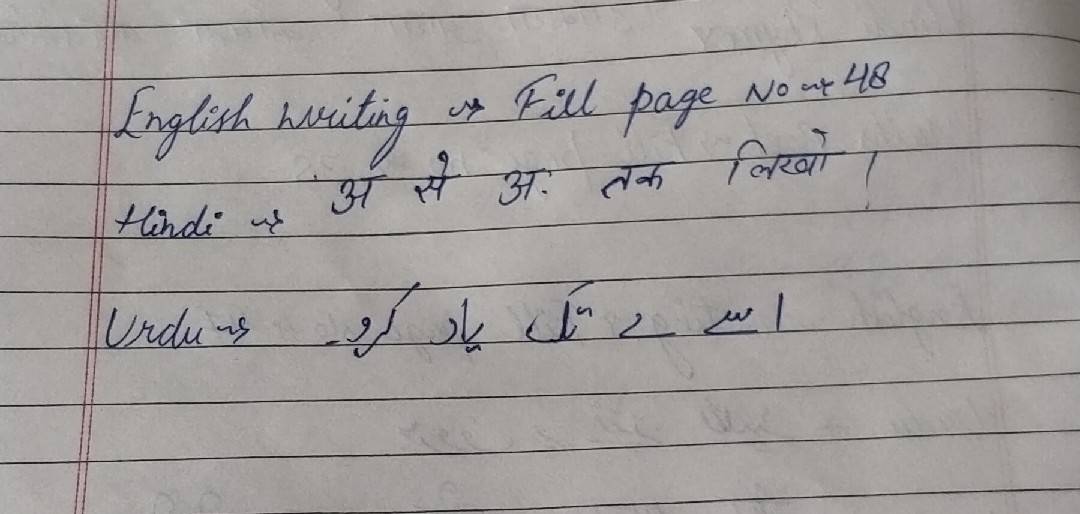 English writing → Fill page No → 48
Hindi → अ से अः तक लिखो।
Urdu → ا سے د تک یاد کرو۔